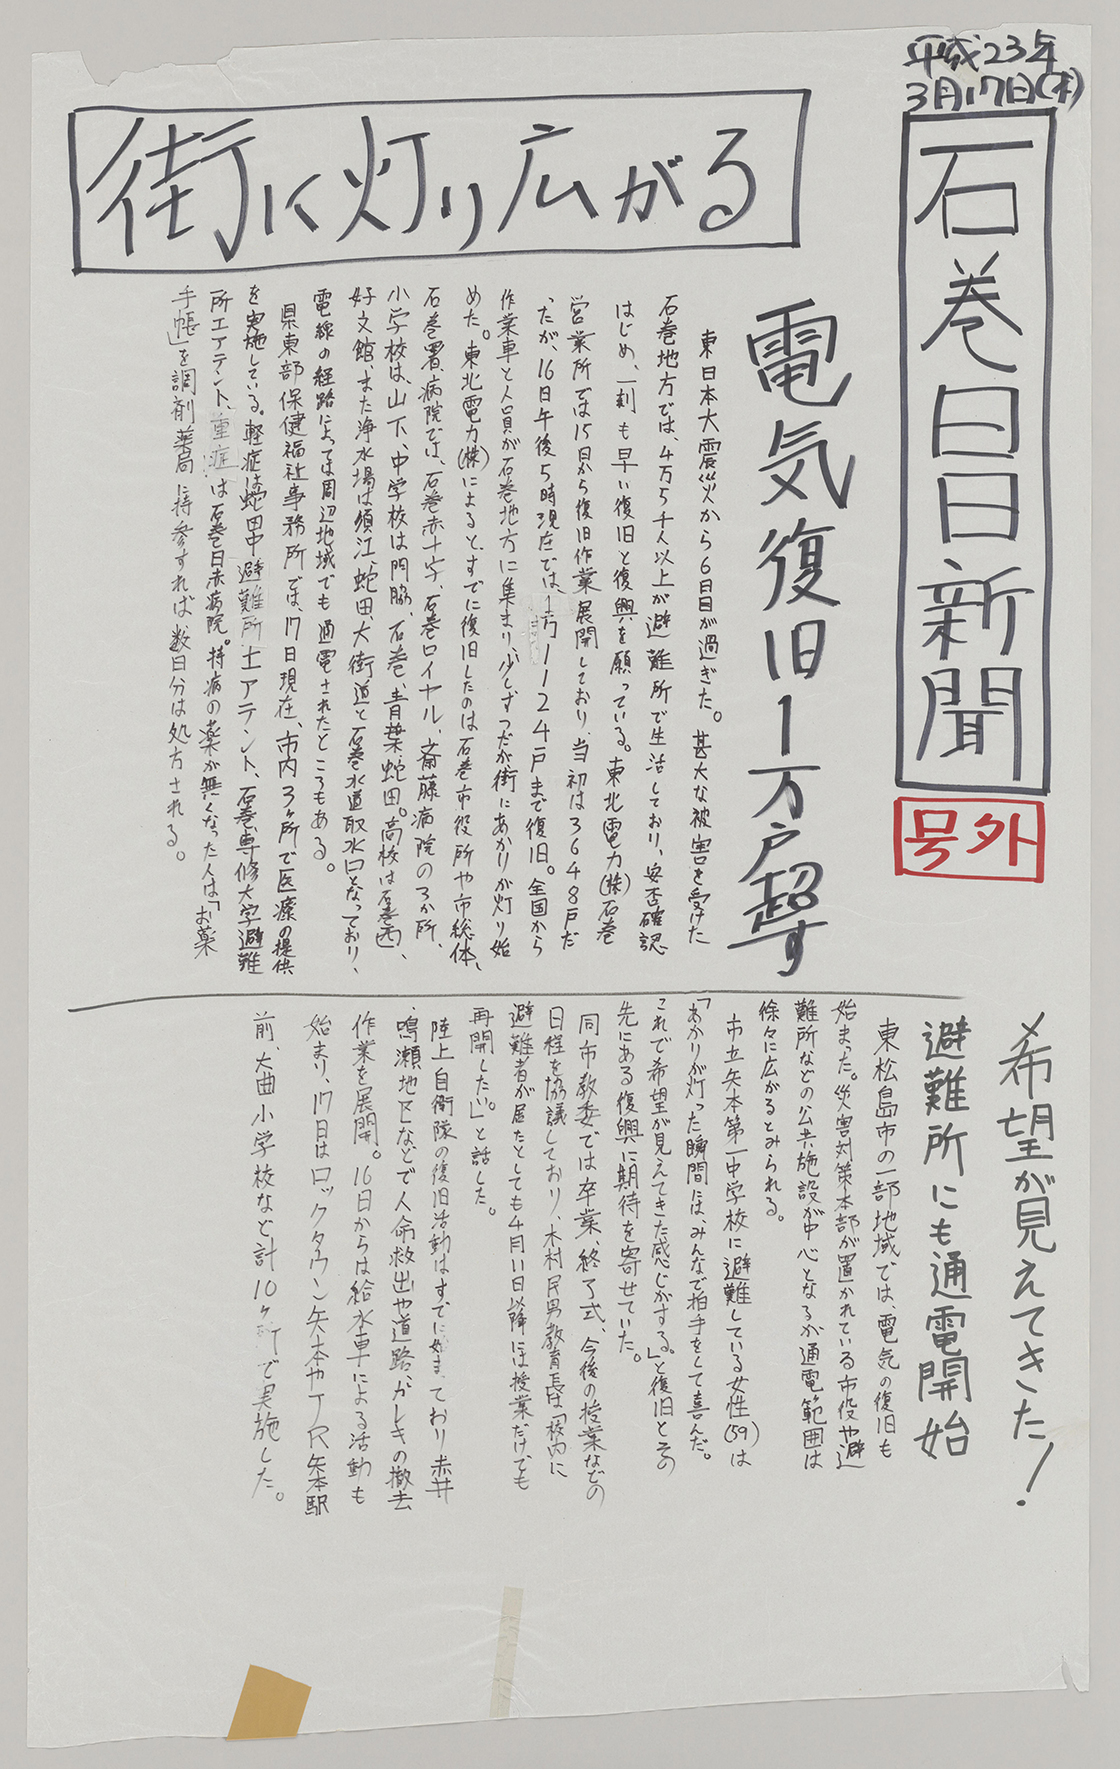 平成23年
3月17日(木)
石巻日日新聞
号外
街に灯り広がる
電気復旧1万戸超す
東日本大震災から6日目が過ぎた。甚大な被害を受けた
石巻地方では、4万5千人以上が避難所で生活しており、安否確認
はじめ、一刻も早い復旧と復興を願っている。東北電力(株)石巻
営業所では15日から復旧作業展開しており、当初は3648戸だ
ったが、16日午後5時現在では、1万1124戸まで復旧。全国から
作業車と人員が石巻地方に集まり、少しずつだが街にあかりが灯り始
めた。東北電力(株)によると、すでに復旧したのは石巻市役所や市総体、
石巻署、病院では、石巻赤十字、石巻ロイヤル、斎藤病院の3か所、
小学校は、山下、中学校は門脇、石巻、青葉、蛇田。高校は石巻西、
好文館、また浄水場は須江、蛇田、大街道と石巻水道取水口となっており、
電線の経路によっては周辺地域でも通電されたところもある。
県東部保健福祉事務所では、17日現在、市内3ヶ所で医療の提供
を実施している。軽症は蛇田中避難所エアテント、石巻専修大学避難
所エアテント、重症は石巻日赤病院。持病の薬が無くなった人は「お薬
手帳」を調剤薬局に持参すれば、数日分は処方される。
希望が見えてきた!
避難所にも通電開始
東松島市の一部地域では、電気の復旧も
始まった。災害対策本部が置かれている市役や避
難所などの公共施設が中心となるが通電範囲は
徐々に広がるとみられる。
市立矢本第一中学校に避難している女性(59)は
「あかりが灯った瞬間には、みんなで拍手をして喜んだ。
これで希望が見えてきた感じがする。」と復旧とその
先にある復興に期待を寄せていた。
同市教委では卒業、終了式、今後の授業などの
日程を協議しており、木村民男教育長は「校内に
避難者が居たとしても4月11日以降には授業だけでも
再開したい。」と話した。
陸上自衛隊の復旧活動はすでに始まっており赤井
、鳴瀬地区などで人命救出や道路、がレキの撤去
作業を展開。16日からは給水車による活動も
始まり、17日はロックタウン矢本やJR矢本駅
前、大曲小学校など計10ヶ所で実施した。